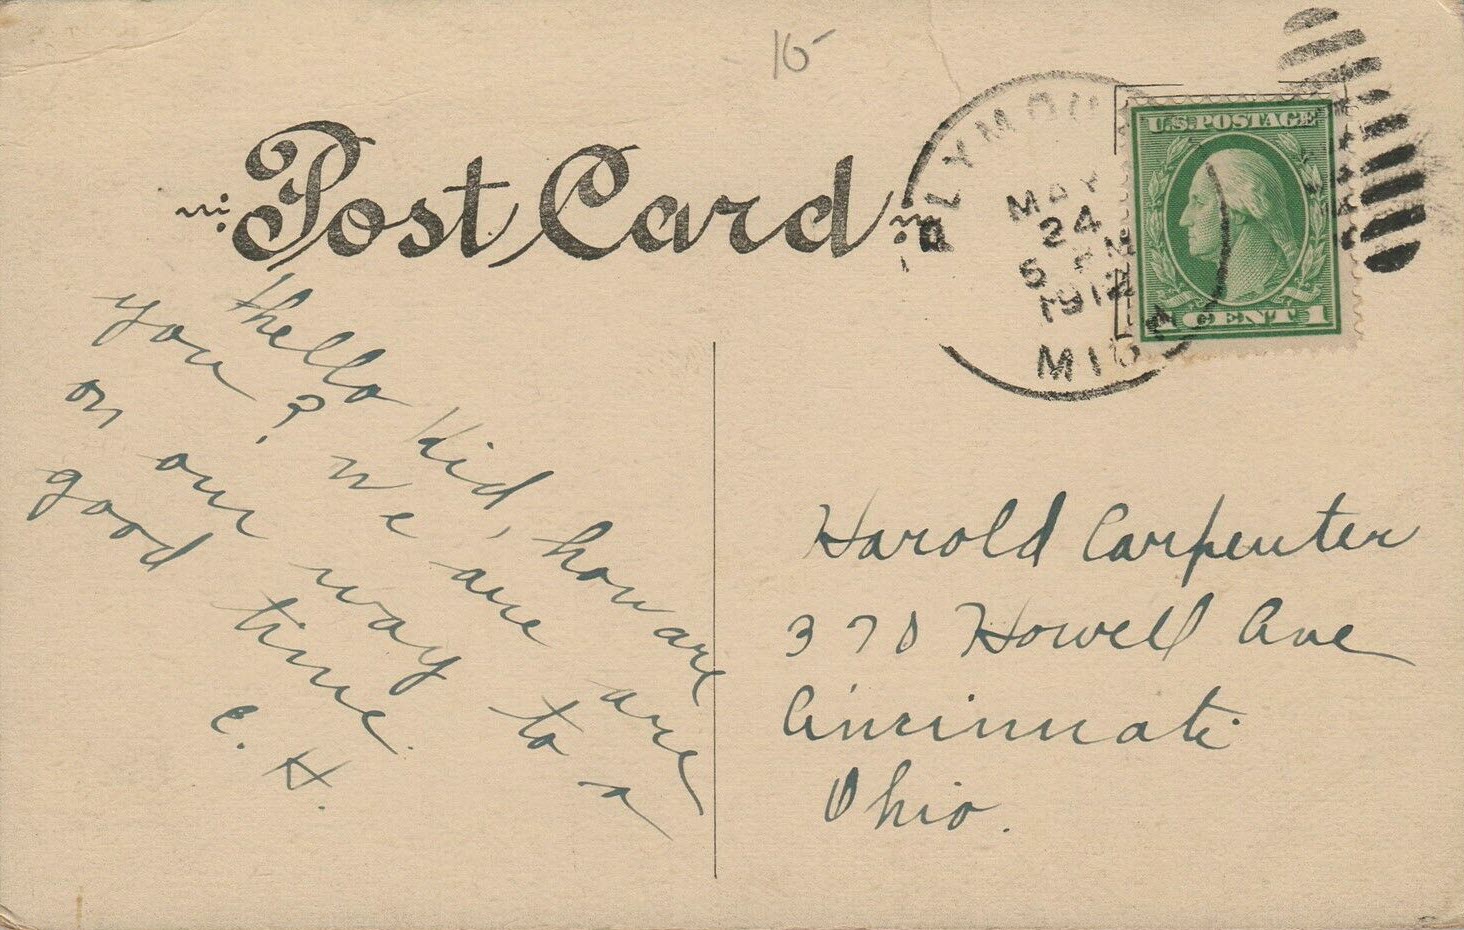 15
Post Card
PLYMOUTH
MAY
24
5 PM
1912
MICH
U.S.POSTAGE
1 CENT 1
Hello Kid, how are
you? We are are
on our way to a
good time.
C. H.
Harold Carpenter
370 Howell Ave
Cincinnati
Ohio.